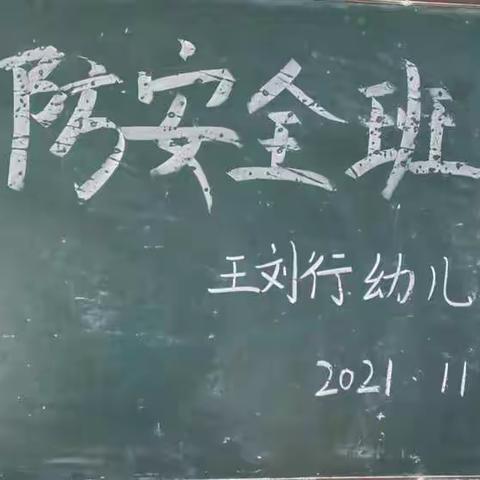 防安全班
王刘行幼儿
2021.11